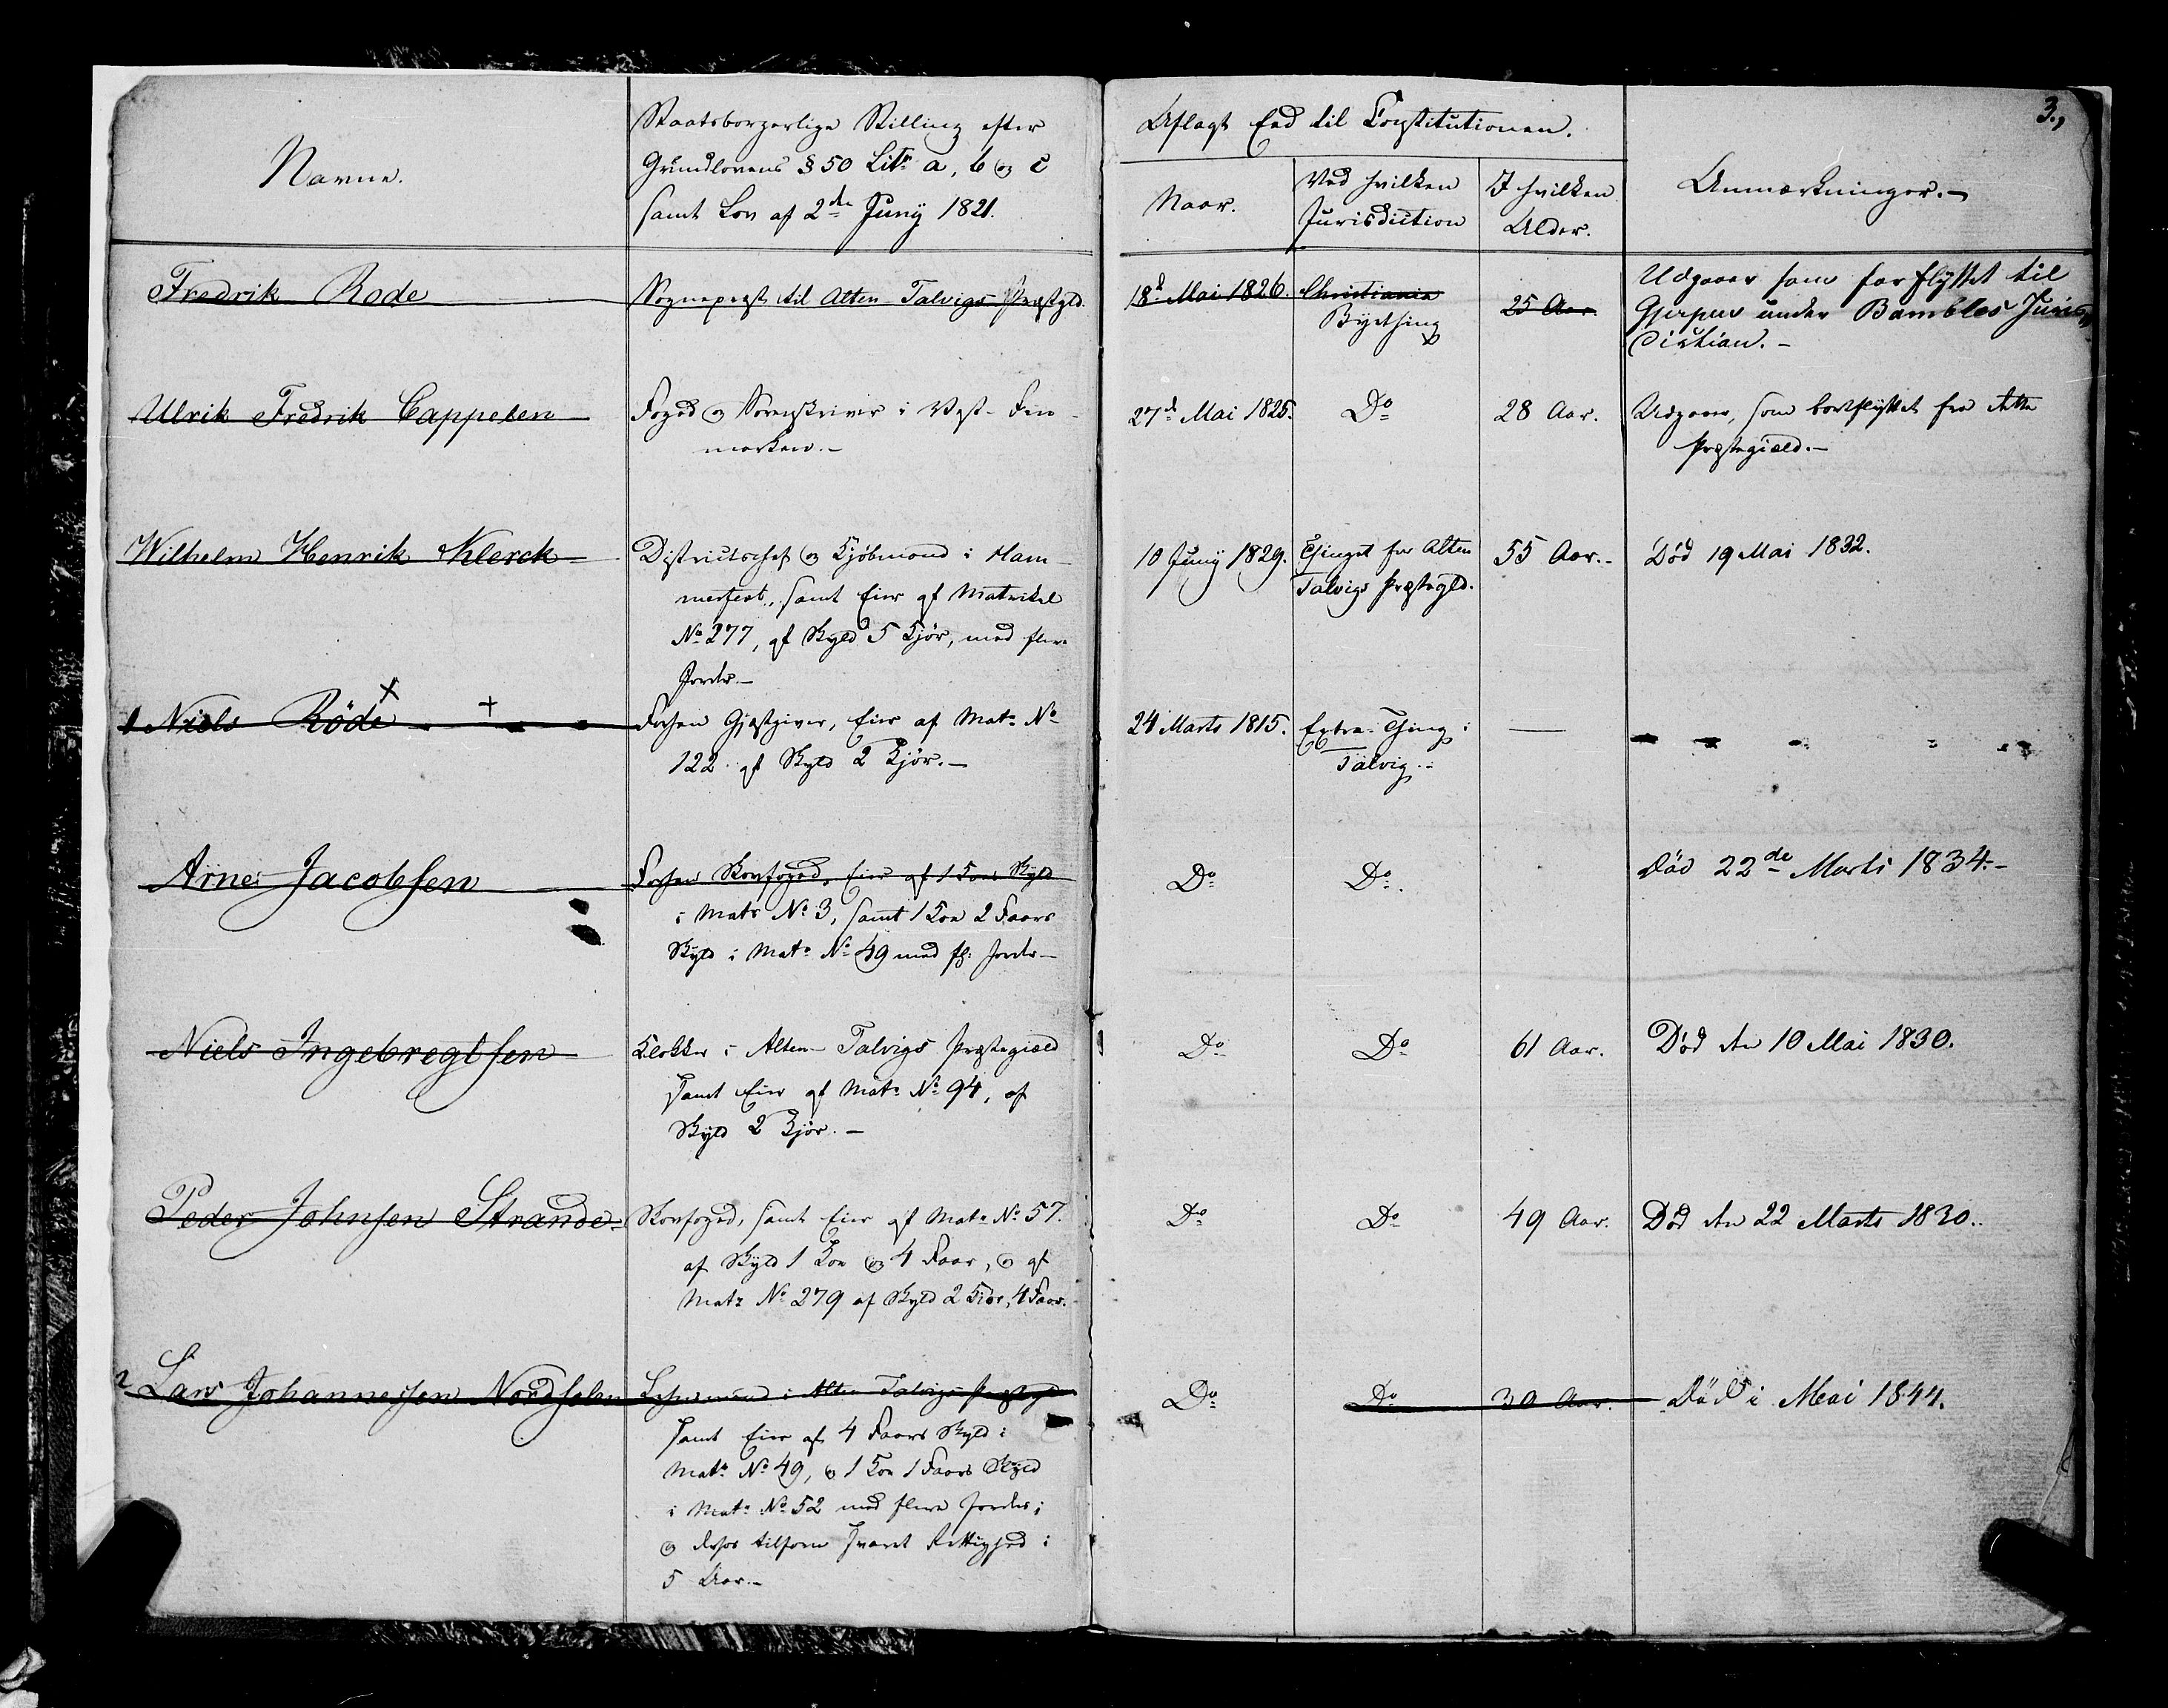 3.,
Navne.
Staatsborgerlige Stilling efter
Grundlovens § 50 Litr a, b og c
samt Lov af 2den Juny 1821.
Aflagt Eed til Constitutionen.
Naar.
Ved hvilken
Jurisdiction
I hvilken
Alder.
Anmærkninger.-
Fredrik Rode
Sognepræst til Alten-Talvigs Præstgld.
18d Mai 1826.
Christiania
Byething
25 Aar.
Udgaaer som forflyttet til
Gjerpen under Bambles Juris-
diction.-
Ulrik Fredrik Cappelen
Foged og Sorenskriver i Vest-Fin-
marken.-
27d Mai 1825.
Do
28 Aar.
Udgaaer, som bortflyttet fra dette
Præstegiæld.-
Wilhelm Henrik Klerck
Districtschef og Kjøbmand i Ham-
merfest, samt Eier af Matrikel
No 277, af Skyld 5 Kjør, med flere
Jorder.-
10 Juny 1829.
Thinget for Alten
Talvigs Præstegld.
55 Aar.-
Død 19 Mai 1832.
1 Niels Röde + +
Forhen Gjæstgiver, Eier af Matr No
122 af Skyld 2 Kjør.-
24 Marts 1815.
Extra-Thing i
Talvig.-
—
Arne Jacobsen
Forhen Skovfoged, Eier af 1 Koes Skyld
i Matr No 3, samt 1 Koe 2 Faars
Skyld i Matr No 49 med fl: Jorder-
Do
Do.
Død 22de Marts 1834.-
Niels Ingebregtsen
Klokker i Alten-Talvigs Præstegiæld
samt Eier af Matr No 94, af
Skyld 2 Kjør.-
Do
Do
61 Aar.
Død den 10 Mai 1830.
Peder Johnsen Strande.
Skovfoged, samt Eier af Matr No 57.
af Skyld 1 Koe og 4 Faar, og af
Matr No 279 af Skyld 2 Kiør, 4 Faar.
Do
Do
49 Aar.
Død den 22 Marts 1830.
2 Lars Johannessen Nordholm
Lehnsmand i Alten Talvigs Præstegld
samt Eier af 4 Faars Skyld i
Matr No 49, og 1 Koe 1 Faars Skyld
i Matr No 52 med flere Jorder;
og derhos tilforn svaret Rettighed i
5 Aar.-
Do
Do
30 Aar.
Död i Mai 1844.